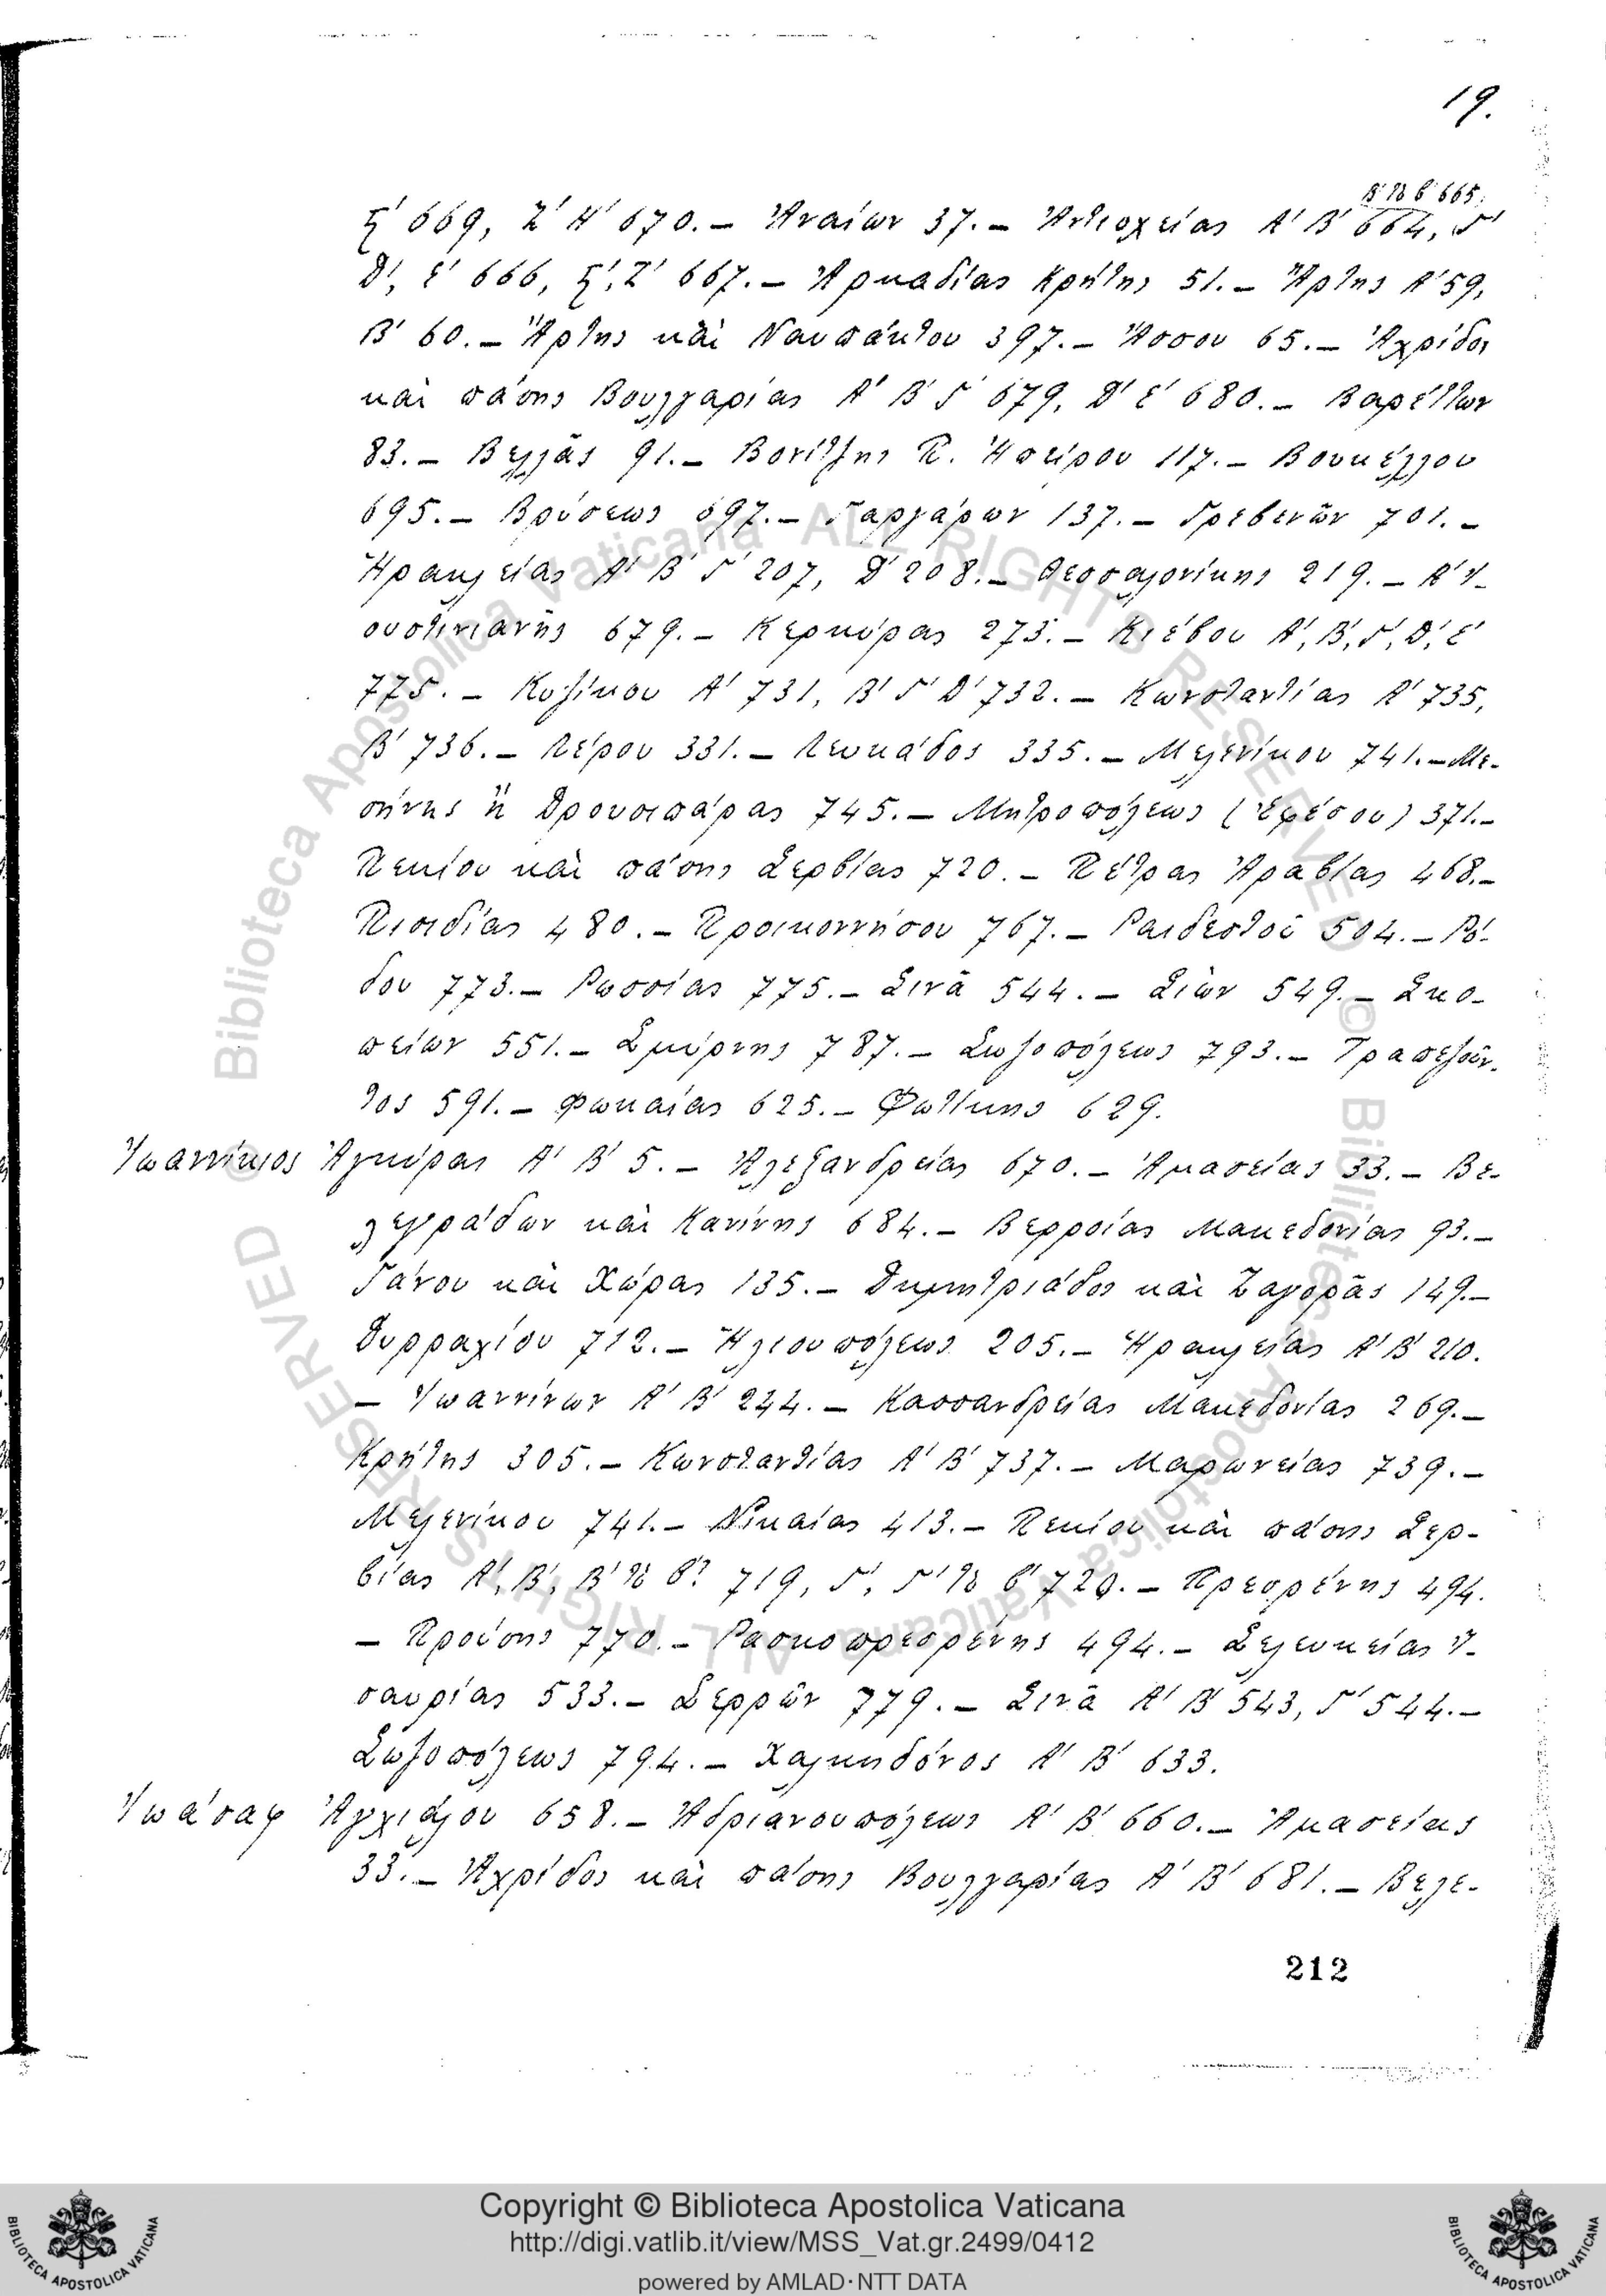 19.
Β′ τὸ β′ 665,
Ϛ′ 669, Ζ′ Η′ 670. – Ἀναίων 37. – Ἀντιοχείας Α′ Β′ 664, Γ′
Δ′, Ε′ 666, Ϛ′, Ζ′ 667. – Ἀρκαδίας Κρήτης 51. – Ἄρτης Α′ 59,
Β′ 60. – Ἄρτης καὶ Ναυπάκτου 397. – Ἄσσου 65. – Ἀχρίδος
καὶ πάσης Βουλγαρίας Α′ Β′ Γ′ 679, Δ′ Ε′ 680. – Βαρέττων
83. – Βελλᾶς 91. – Βονίτζης Π. Ἠπείρου 117. – Βουκέλλου
695. – Βρύσεως 697. – Γαργάρων 137. – Γρεβενῶν 701. –
Ἡρακλείας Α′ Β′ Γ′ 207, Δ′ 208. – Θεσσαλονίκης 219. – Α′ Ἰ-
ουστινιανῆς 679. – Κερκύρας 273. – Κιέβου Α′, Β′, Γ′, Δ′, Ε′
775. – Κυζίκου Α′ 731, Β′ Γ′ Δ′ 732. – Κωνσταντίας Α′ 735,
Β′ 736. – Λέρου 331. – Λευκάδος 335. – Μελενίκου 741. – Με-
σήνης ἢ Δρουσιπάρας 745. – Μητροπόλεως (Ἐφέσου) 371. –
Πεκίου καὶ πάσης Σερβίας 720. – Πέτρας Ἀραβίας 468. –
Πισιδίας 480. – Προικοννήσου 767. – Ραιδεστοῦ 504. – Ρό-
δου 773. – Ρωσσίας 775. – Σινᾶ 544. – Σιὼν 549. – Σκο-
πείων 551. – Σμύρνης 787. – Σωζοπόλεως 793. – Τραπεζοῦν-
τος 591. – Φωκαίας 625. – Φωτικης 629.
Ἰωαννίκιος Ἀγκύρας Α′ Β′ 5. – Ἀλεξανδρείας 670. – Ἀμασείας 33. – Βε-
λεγράδων καὶ Κανίνης 684. – Βερροίας Μακεδονίας 93. –
Γάνου καὶ Χώρας 135. – Δημητριάδος καὶ Ζαγορᾶς 149. –
Δυρραχίου 712. – Ἡλιουπόλεως 205. – Ἡρακλείας Α′ Β′ 210.
– Ἰωαννίνων Α′ Β′ 244. – Κασσανδρείας Μακεδονίας 269. –
Κρήτης 305. – Κωνσταντίας Α′ Β′ 737. – Μαρωνείας 739. –
Μελενίκου 741. – Νικαίας 413. – Πεκίου καὶ πάσης Σερ-
βίας Α′, Β′, Β′ τὸ β? 719, Γ′, Γ′ τὸ β′ 720. – Πρεσρένης 494.
– Προύσης 770. – Ρασκοπρεσρένης 494. – Σελευκείας Ἰ-
σαυρίας 533. – Σερρῶν 779. – Σινᾶ Α′ Β′ 543, Γ′ 544. –
Σωζοπόλεως 794. – Χαλκηδόνος Α′ Β′ 633.
Ἰωάσαφ Ἀγχιάλου 658. – Ἀδριανουπόλεως Α′ Β′ 660. – Ἀμασείας
33. – Ἀχρίδος καὶ πάσης Βουλγαρίας Α′ Β′ 681. – Βελε-
212
© Biblioteca Apostolica Vaticana ALL RIGHTS RESERVED
© Biblioteca Apostolica Vaticana ALL RIGHTS RESERVED
Copyright © Biblioteca Apostolica Vaticana
http://digi.vatlib.it/view/MSS_Vat.gr.2499/0412
powered by AMLAD·NTT DATA
BIBLIOTECA APOSTOLICA VATICANA
BIBLIOTECA APOSTOLICA VATICANA